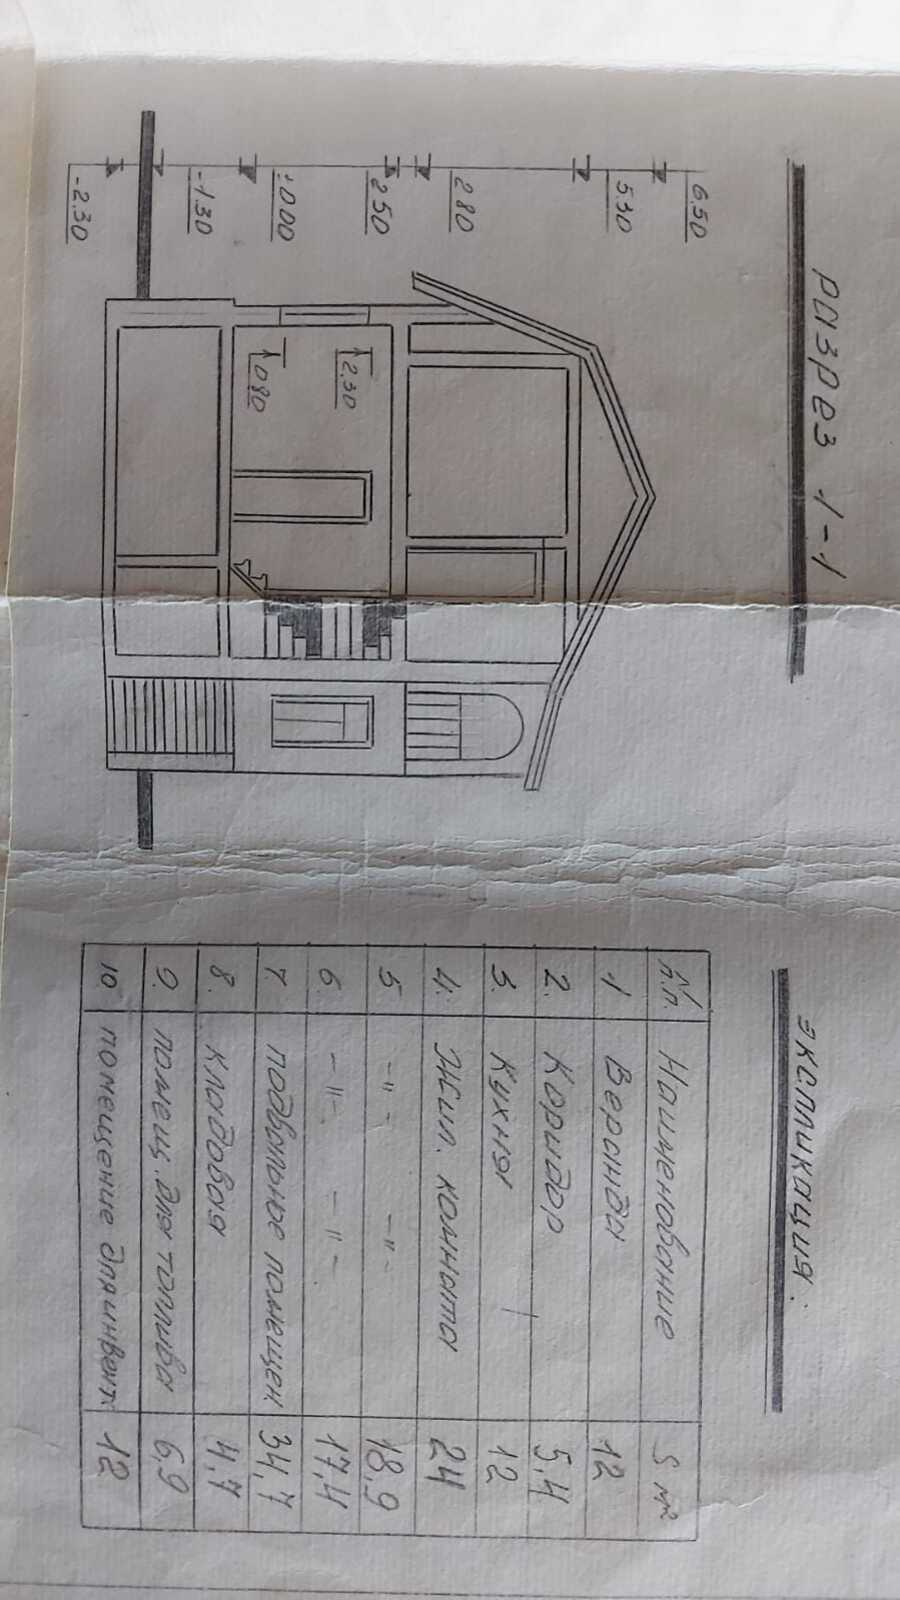 разрез 1-1
6.50
5.30
2.80
2.50
±0.00
-1.30
-2.30
2.30
0.80
экспликация:
№ п.п. Наименование S м²
1 Веранда 12
2. Коридор 5,4
3. Кухня 12
4. Жил. комната 24
5 -"- -"- 18,9
6. -"- -"- 17,4
7. подвальное помещен. 34,7
8. Кладовая 4,7
9. помещ. для топлива 6,9
10 помещение для инвент. 12